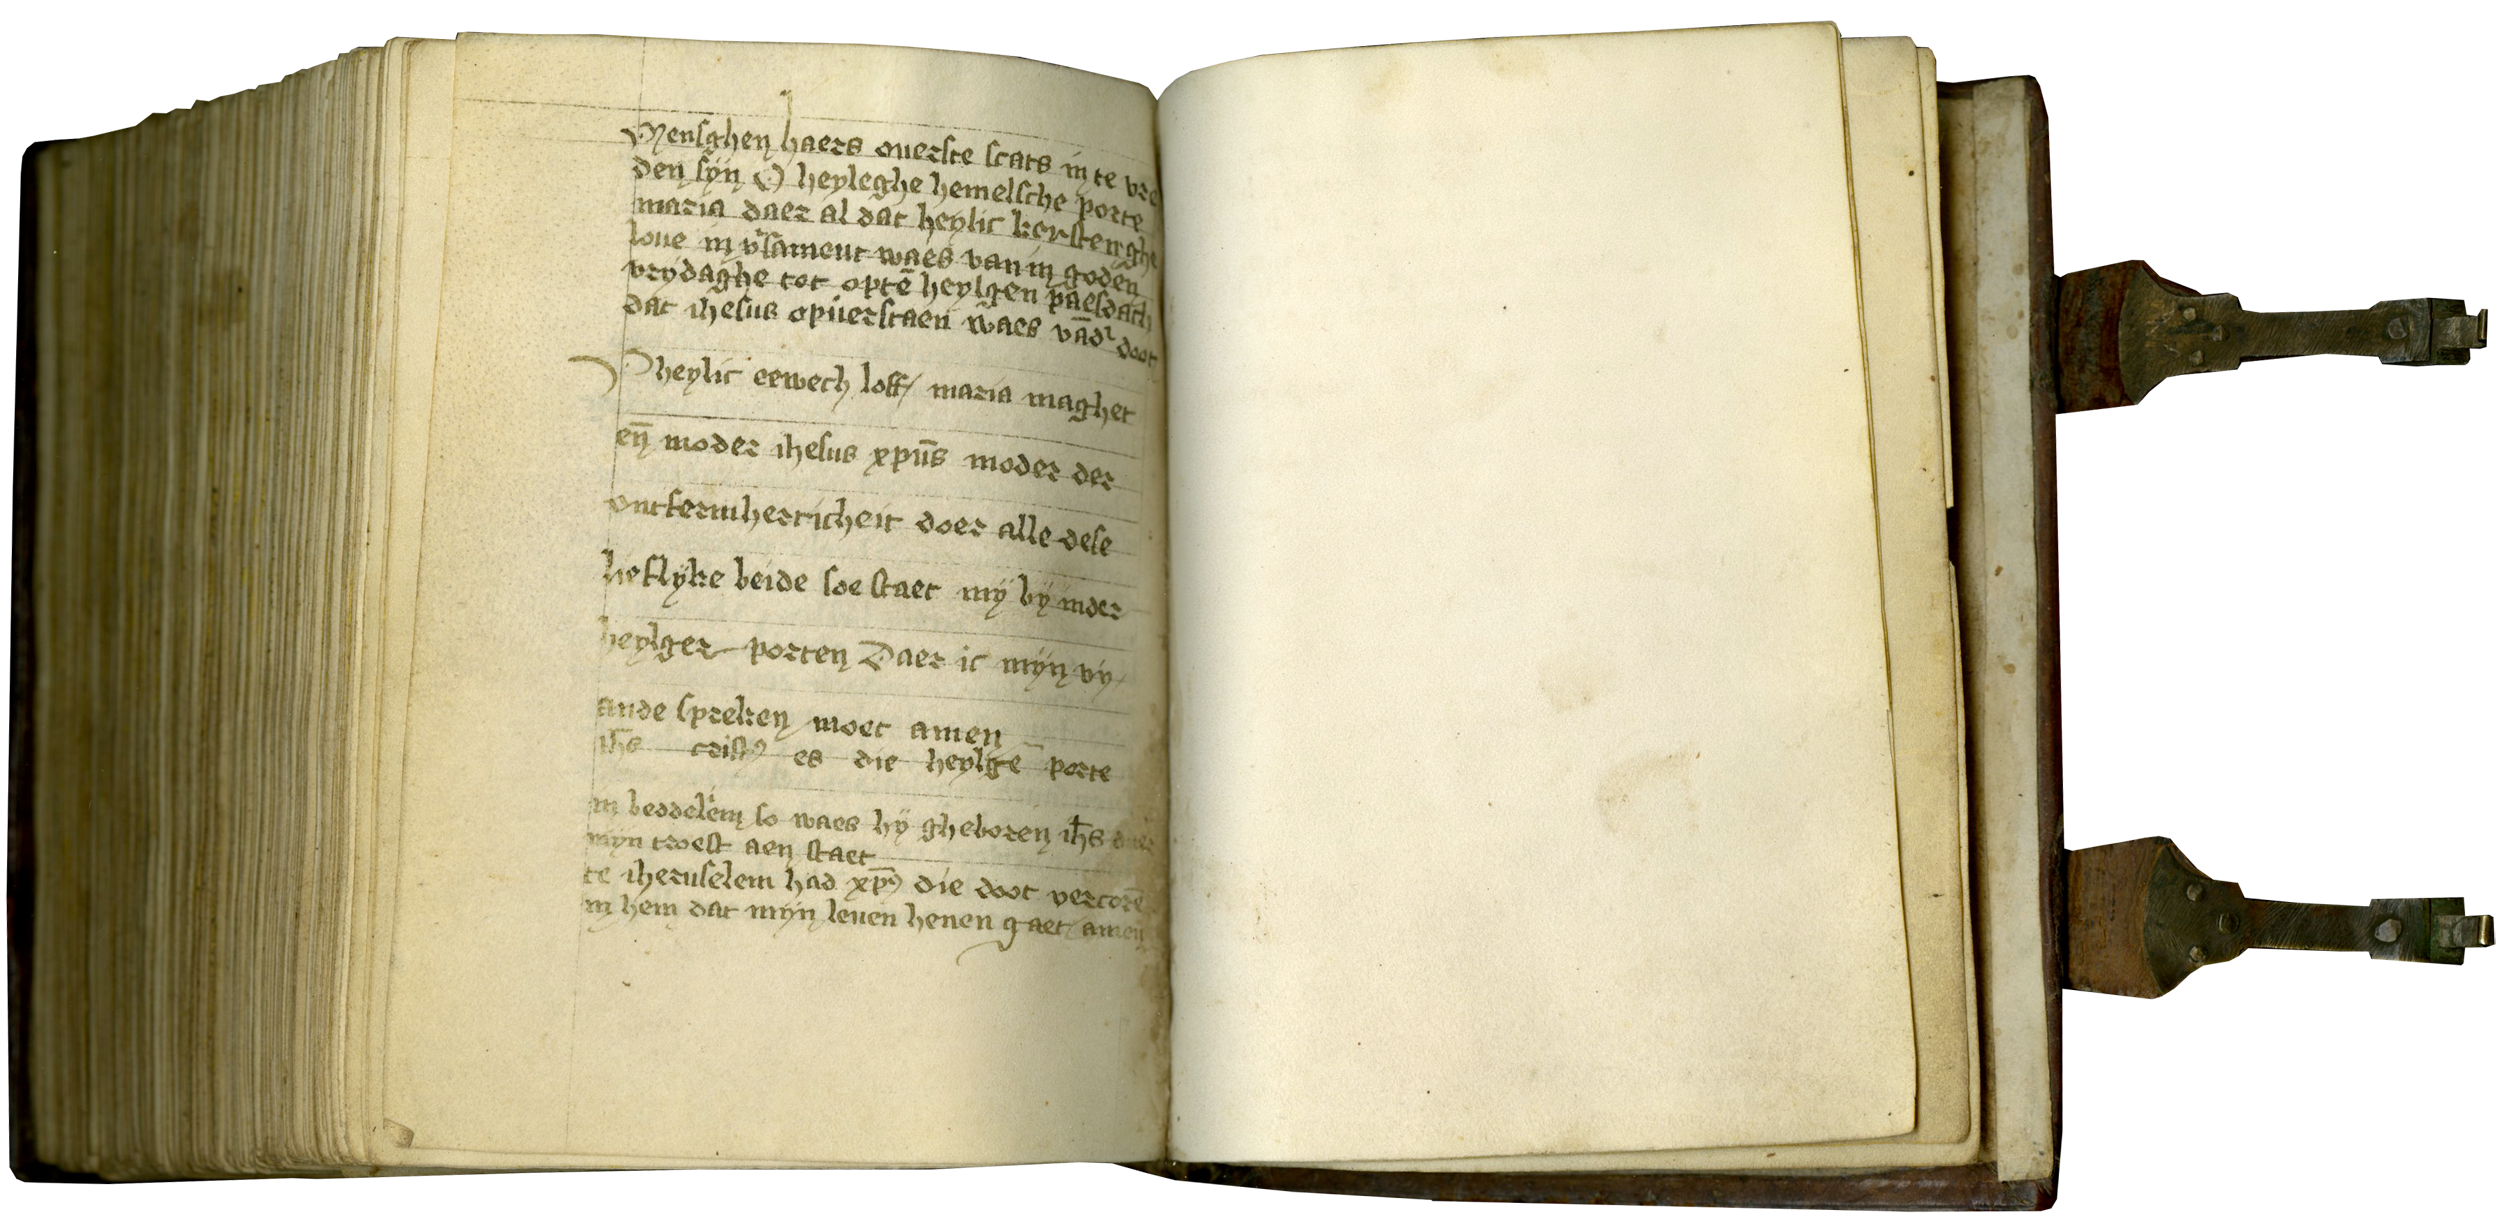 Menschen haers ouerste scats in te vre
den sijn O heyleghe hemelsche porte
maria daer al dat heylic kersten ghe
loue in v'sament waes van in goden
vrydaghe tot optē heylgen paesdach
dat ihesus opuerstaen waes vād' doot
O heylic eewech loff maria maghet
eñ moder ihesus xpūs moder der
ontfermherticheit doer alle dese
beide soe staet mÿ bÿ inder
heylger porten Daer ic mÿn vÿ
ande spreken moet amen
ih̄s crist9 es die heylge porte
in beddelem so waes hÿ gheboren ih̄s daer
mijn troest aen staet
te iheruselem had xp̄9 die doot vercorē
in hem dat mijn leuen henen gaet amen